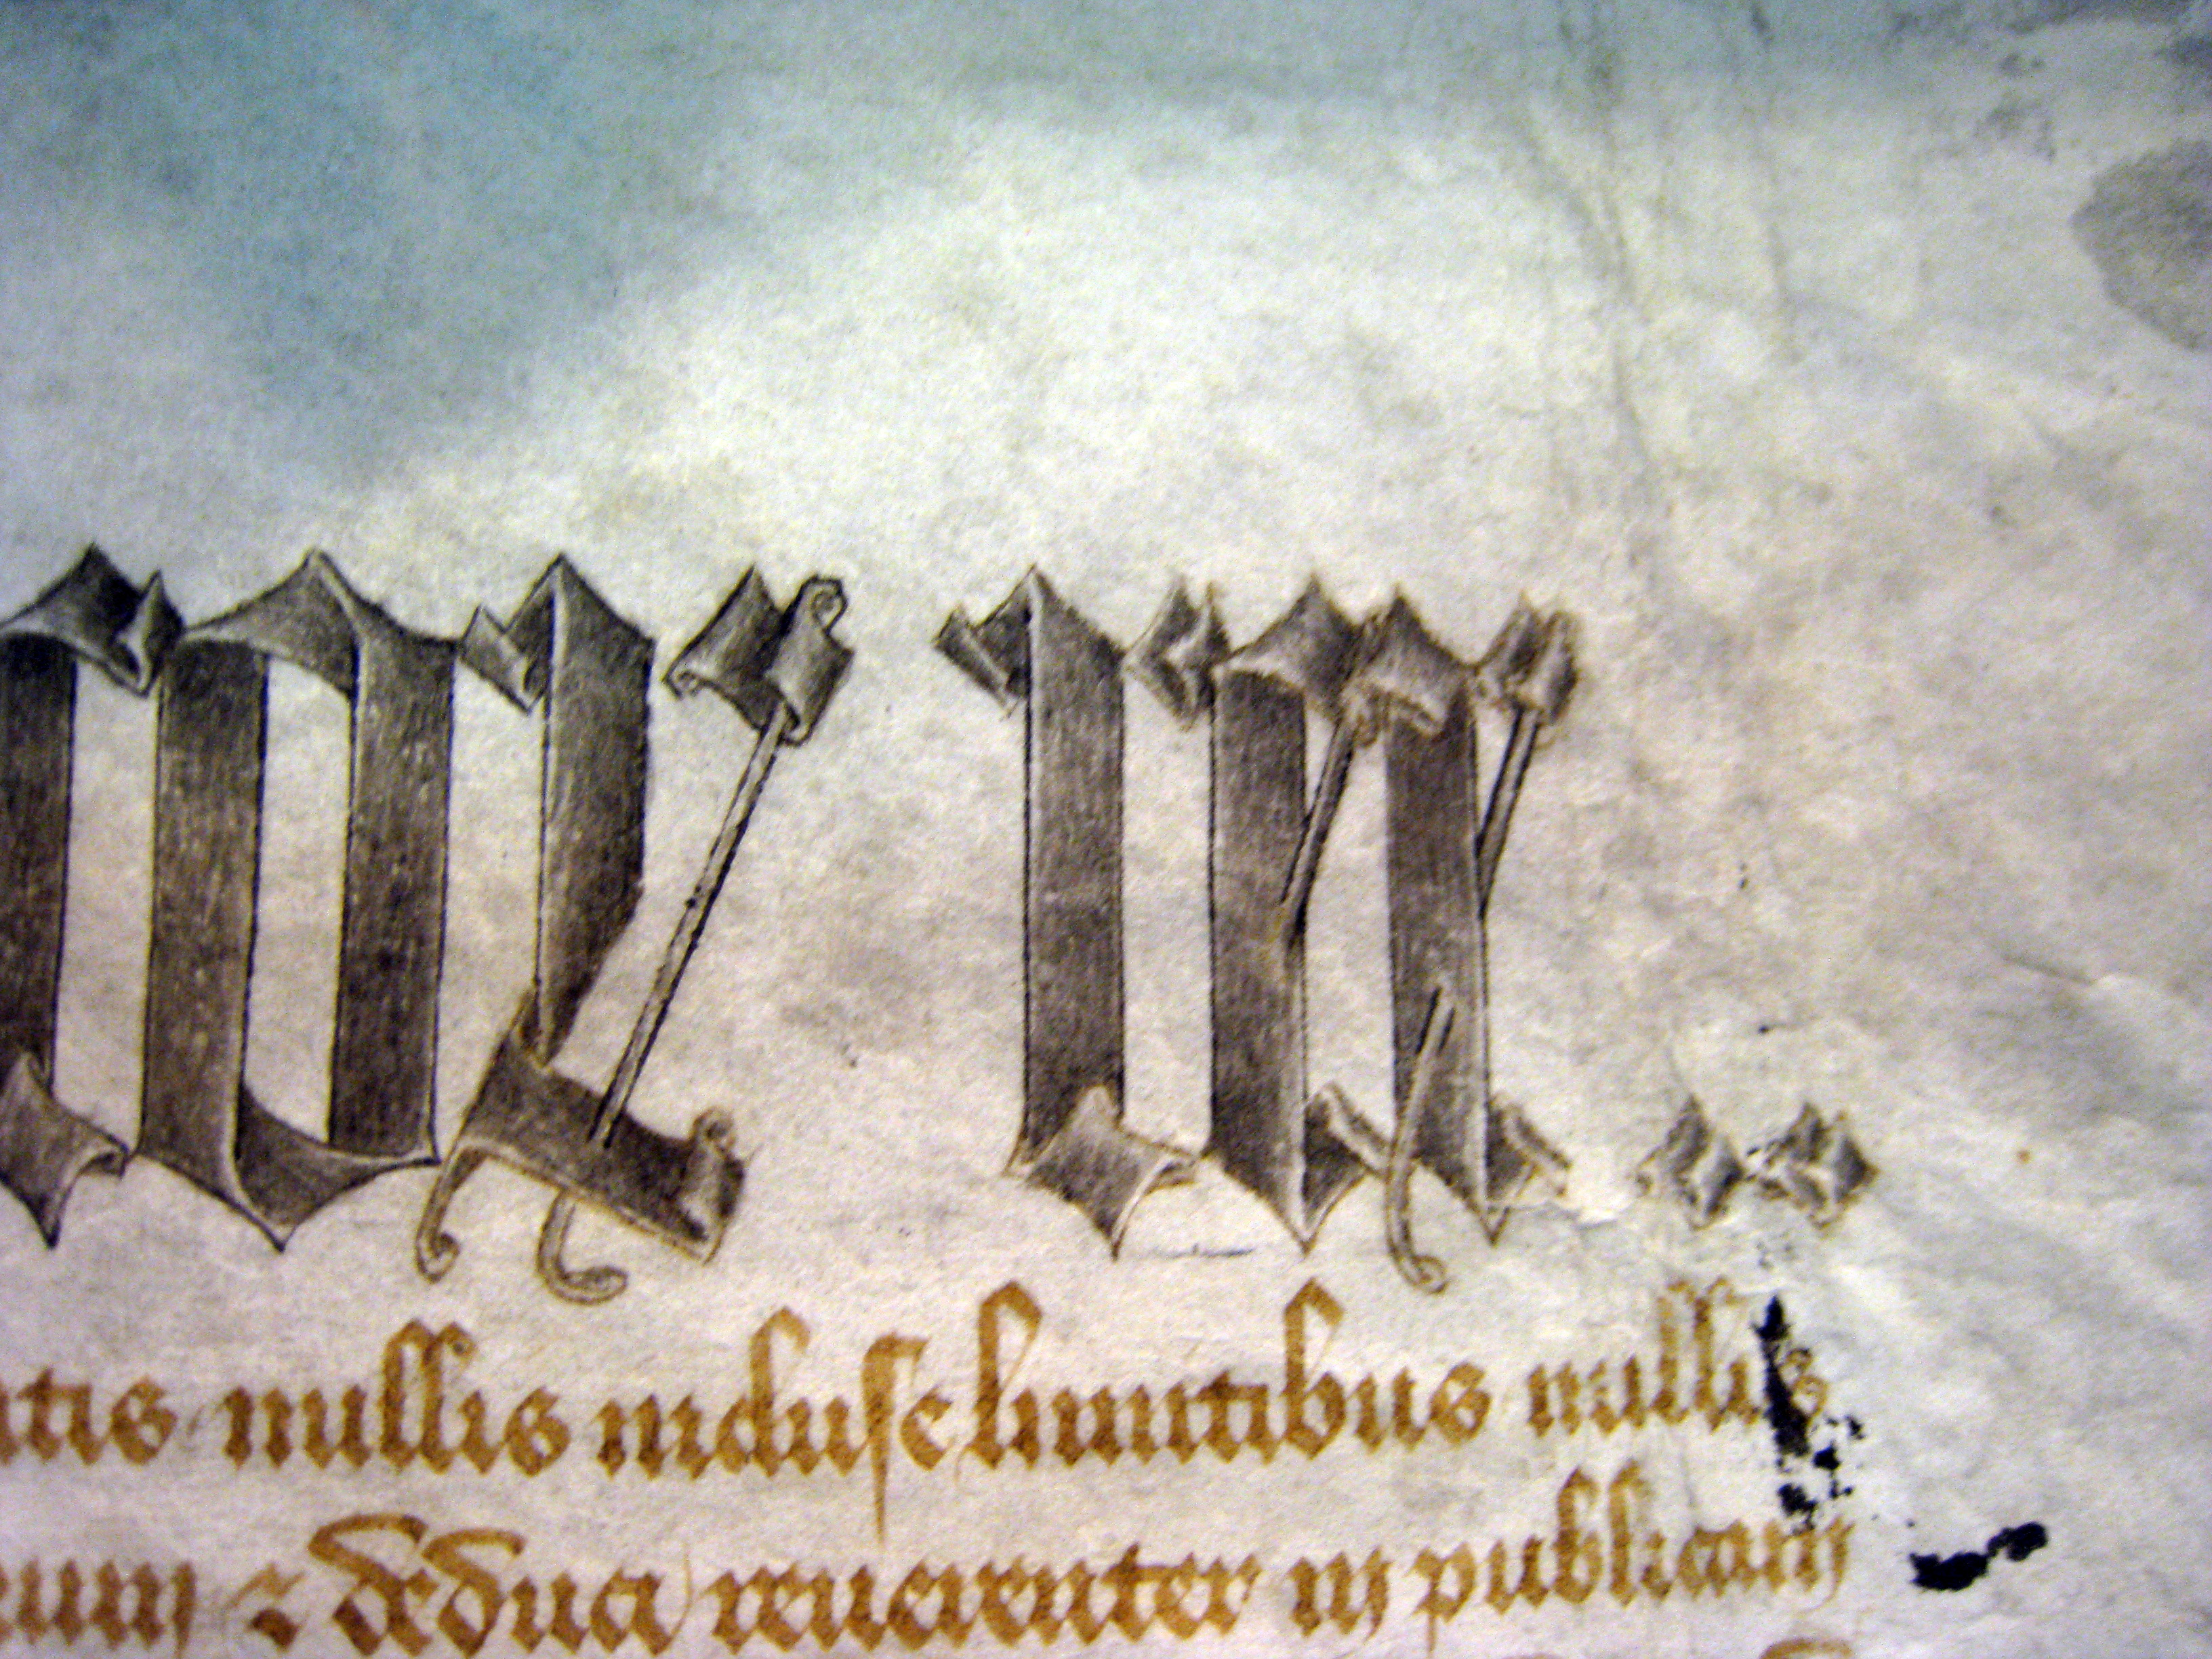 or
tis nullis incluse limitibus nullis
⁊ deduci reuerenter in publicam